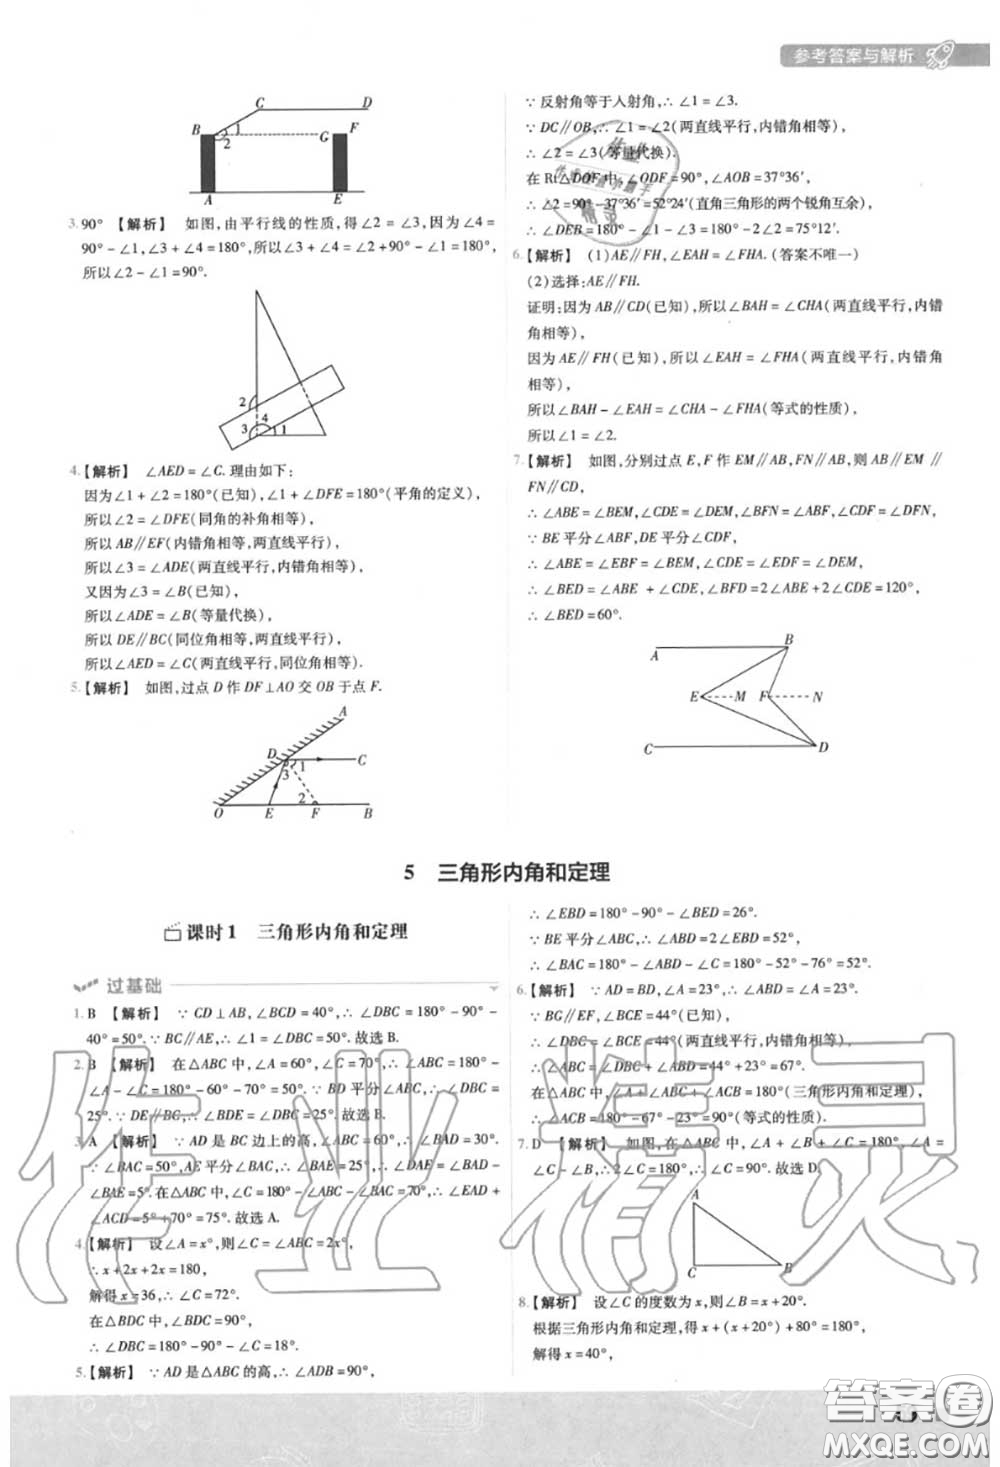 参考答案与解析
C D
B 1 G F
2
A E
3. 90° 【解析】 如图,由平行线的性质,得∠2 = ∠3,因为∠4 =
90° - ∠1,∠3 + ∠4 = 180°,所以∠2 + 90° - ∠1 = 180°,
所以∠2 - ∠1 = 90°.
2
4
3 1
4. 【解析】 ∠AED = ∠C. 理由如下:
因为∠1 + ∠2 = 180°(已知),∠1 + ∠DFE = 180°(平角的定义),
所以∠2 = ∠DFE(同角的补角相等),
所以 AB∥EF(内错角相等,两直线平行),
所以∠3 = ∠ADE(两直线平行,内错角相等),
又因为∠3 = ∠B(已知),
所以∠ADE = ∠B(等量代换),
所以 DE∥BC(同位角相等,两直线平行),
所以∠AED = ∠C(两直线平行,同位角相等).
5. 【解析】 如图,过点 D 作 DF⊥AO 交 OB 于点 F.
A
D 1 C
3
2
O E F B
∵ 反射角等于入射角,∴ ∠1 = ∠3.
∵ DC∥OB,∴ ∠1 = ∠2(两直线平行,内错角相等),
∴ ∠2 = ∠3(等量代换).
在 Rt△DOF 中,∠ODF = 90°,∠AOB = 37°36′,
∴ ∠2 = 90° - 37°36′ = 52°24′(直角三角形的两个锐角互余),
∴ ∠DEB = 180° - ∠1 - ∠3 = 180° - 2∠2 = 75°12′.
6. 【解析】 (1)AE∥FH,∠EAH = ∠FHA. (答案不唯一)
(2)选择:AE∥FH.
证明:因为 AB∥CD(已知),所以∠BAH = ∠CHA(两直线平行,内错
角相等),
因为 AE∥FH(已知),所以∠EAH = ∠FHA(两直线平行,内错角
相等),
所以∠BAH - ∠EAH = ∠CHA - ∠FHA(等式的性质),
所以∠1 = ∠2.
7. 【解析】 如图,分别过点 E,F 作 EM∥AB,FN∥AB,则 AB∥EM∥
FN∥CD,
∴ ∠ABE = ∠BEM,∠CDE = ∠DEM,∠BFN = ∠ABF,∠CDF = ∠DFN,
∵ BE 平分∠ABF,DE 平分∠CDF,
∴ ∠ABE = ∠EBF = ∠BEM,∠CDE = ∠EDF = ∠DEM,
∴ ∠BED = ∠ABE + ∠CDE,∠BFD = 2∠ABE + 2∠CDE = 120°,
∴ ∠BED = 60°.
A B
E M F N
C D
5 三角形内角和定理
课时1 三角形内角和定理
过基础
1. B 【解析】 ∵ CD⊥AB,∠BCD = 40°,∴ ∠DBC = 180° - 90° -
40° = 50°. ∵ BC∥AE,∴ ∠A = ∠DBC = 50°. 故选 B.
2. B 【解析】 在△ABC 中,∠A = 60°,∠C = 70°,∴ ∠ABC = 180° -
∠A - ∠C = 180° - 60° - 70° = 50°. ∵ BD 平分∠ABC,∴ ∠DBC =
25°. ∵ DE∥BC,∴ ∠BDE = ∠DBC = 25°. 故选 B.
3. A 【解析】 ∵ AD 是 BC 边上的高,∠ABC = 60°,∴ ∠BAD = 30°.
∵ ∠BAC = 50°,AE 平分∠BAC,∴ ∠BAE = 25°,∴ ∠EAD = ∠BAD -
∠BAE = 5°. 在△ABC 中,∠C = 180° - ∠ABC - ∠BAC = 70°,∴ ∠EAD +
∠ACD = 5° + 70° = 75°. 故选 A.
4. 【解析】 设∠A = x°,则∠C = ∠ABC = 2x°,
∴ x + 2x + 2x = 180,
解得 x = 36,∴ ∠C = 72°.
在△BDC 中,∵ ∠BDC = 90°,
∴ ∠DBC = 180° - 90° - ∠C = 18°.
5. 【解析】 ∵ AD 是△ABC 的高,∴ ∠ADB = 90°,
∴ ∠EBD = 180° - 90° - ∠BED = 26°.
∵ BE 平分∠ABC,∴ ∠ABD = 2∠EBD = 52°,
∴ ∠BAC = 180° - ∠ABD - ∠C = 180° - 52° - 76° = 52°.
6. 【解析】 ∵ AD = BD,∠A = 23°,∴ ∠ABD = ∠A = 23°.
∵ BG∥EF,∠BCE = 44°(已知),
∴ ∠DBC = ∠BCE = 44°(两直线平行,内错角相等),
∴ ∠ABC = ∠DBC + ∠ABD = 44° + 23° = 67°.
在△ABC 中,∠A + ∠ABC + ∠ACB = 180°(三角形内角和定理),
∴ ∠ACB = 180° - 67° - 23° = 90°(等式的性质).
7. D 【解析】 如图,在△ABC 中,∠A + ∠B + ∠C = 180°,∠A =
∠C - ∠B,∴ 2∠C = 180°,∴ ∠C = 90°. 故选 D.
A
C B
8. 【解析】 设∠C 的度数为 x,则∠B = x + 20°.
根据三角形内角和定理,得 x + (x + 20°) + 80° = 180°,
解得 x = 40°,
作业精灵
答案圈
MXQE.COM